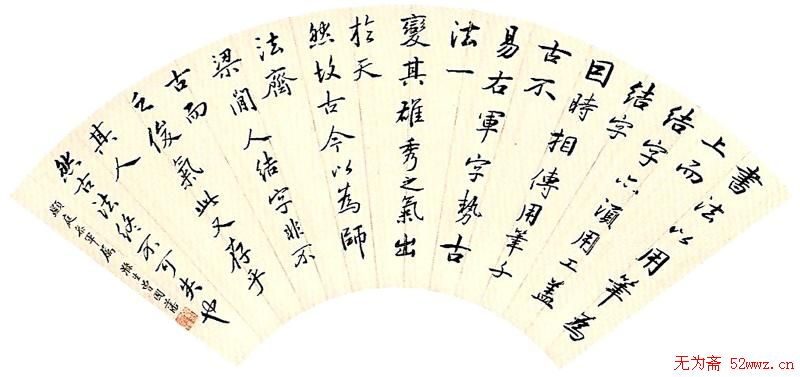 書法以用筆為
上而
結字亦須用工蓋
結字
因時相傳用筆千
古不
易右軍字勢古
法一
變其雄秀之氣出
於天
然故古今以為師
法齊
梁間人結字非不
古而
乏俊氣此又存乎
其人
然古法終不可失也
庭參軍屬 滌生曾國藩
无为斋 52wwz.cn